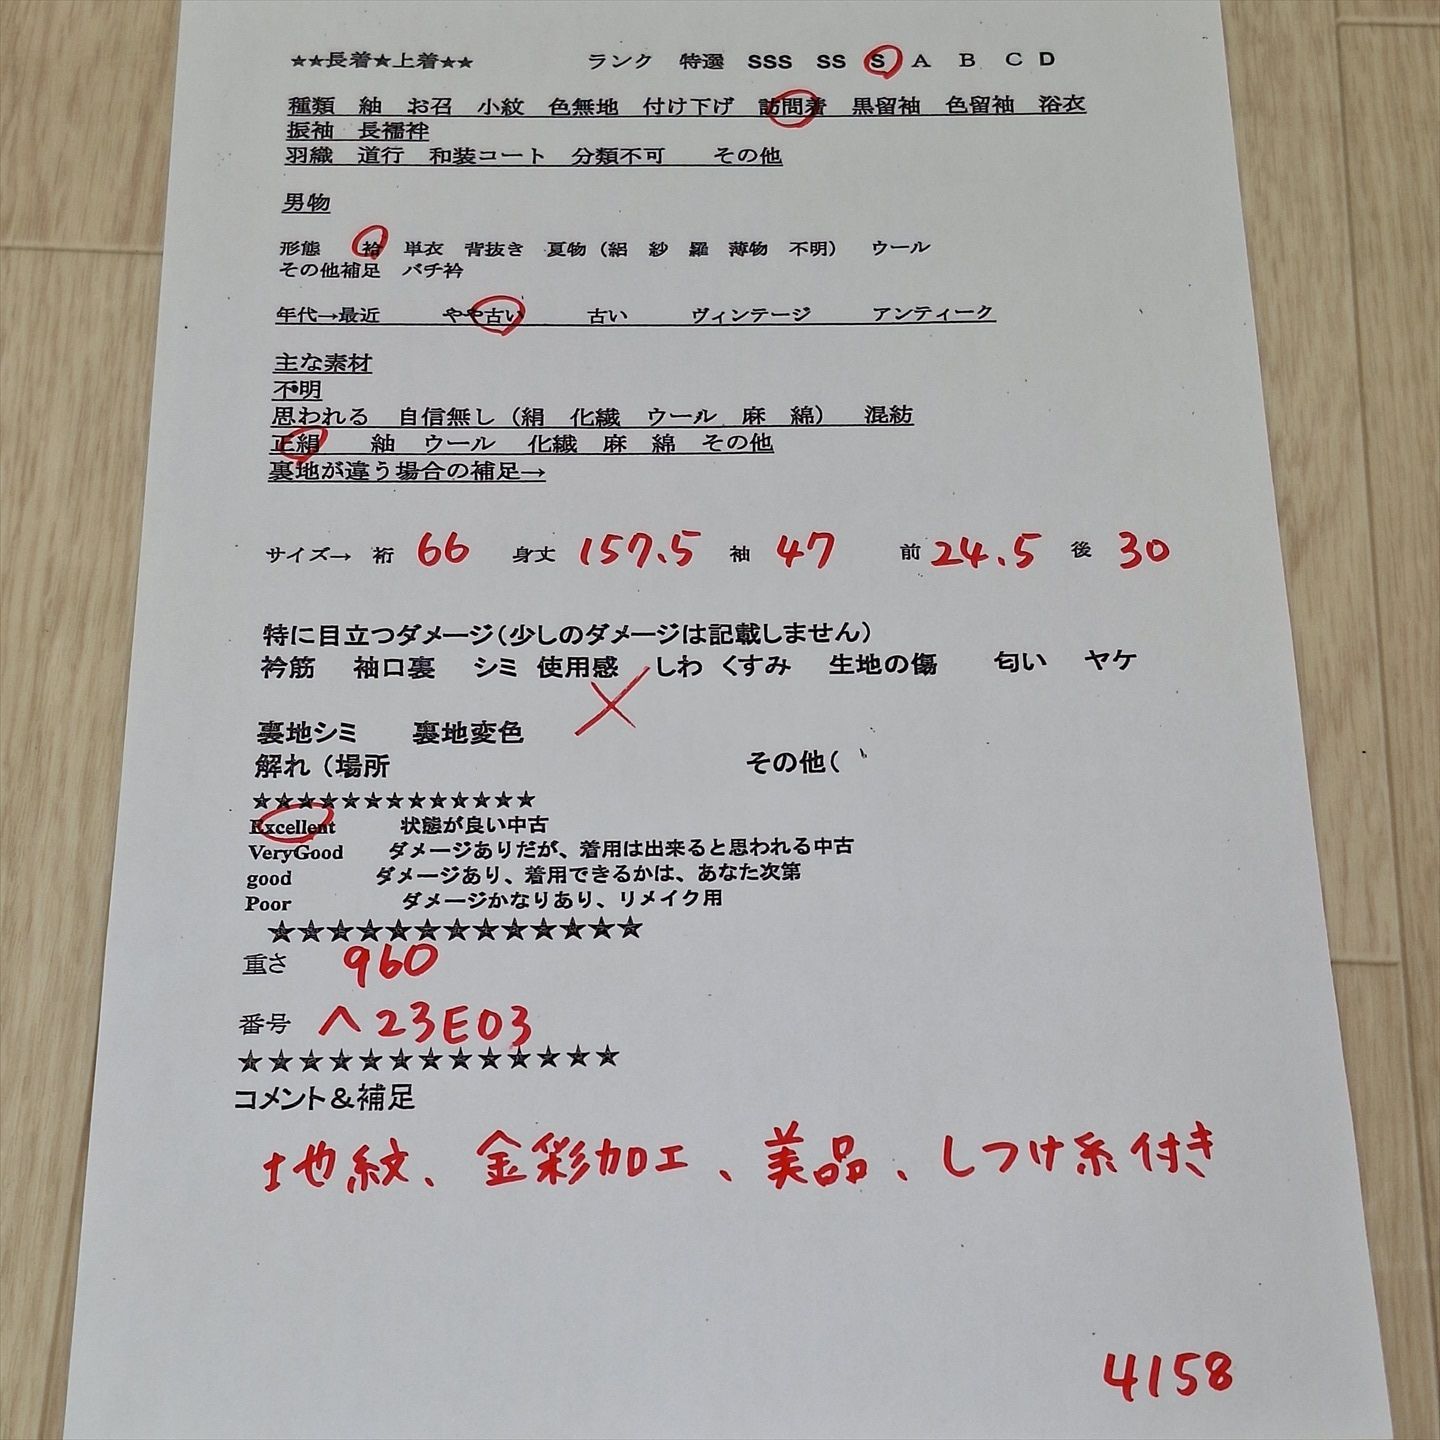 ★★長着★上着★★ ランク 特選 SSS SS S A B C D
種類 紬 お召 小紋 色無地 付け下げ 訪問着 黒留袖 色留袖 浴衣
振袖 長襦袢
羽織 道行 和装コート 分類不可 その他
男物
形態 袷 単衣 背抜き 夏物（絽 紗 羅 薄物 不明） ウール
その他補足 バチ衿
年代→最近 やや古い 古い ヴィンテージ アンティーク
主な素材
不明
思われる 自信無し（絹 化繊 ウール 麻 綿） 混紡
正絹 紬 ウール 化繊 麻 綿 その他
裏地が違う場合の補足→
サイズ→ 裄 66 身丈 157.5 袖 47 前 24.5 後 30
特に目立つダメージ（少しのダメージは記載しません）
衿筋 袖口裏 シミ 使用感 しわ くすみ 生地の傷 匂い ヤケ
裏地シミ 裏地変色
解れ（場所 その他（
★★★★★★★★★★★★★
Excellent 状態が良い中古
VeryGood ダメージありだが、着用は出来ると思われる中古
good ダメージあり、着用できるかは、あなた次第
Poor ダメージかなりあり、リメイク用
★★★★★★★★★★★★★
重さ 960
番号 ヘ23E03
★★★★★★★★★★★★★
コメント＆補足
地紋、金彩加工、美品、しつけ糸付き
4158